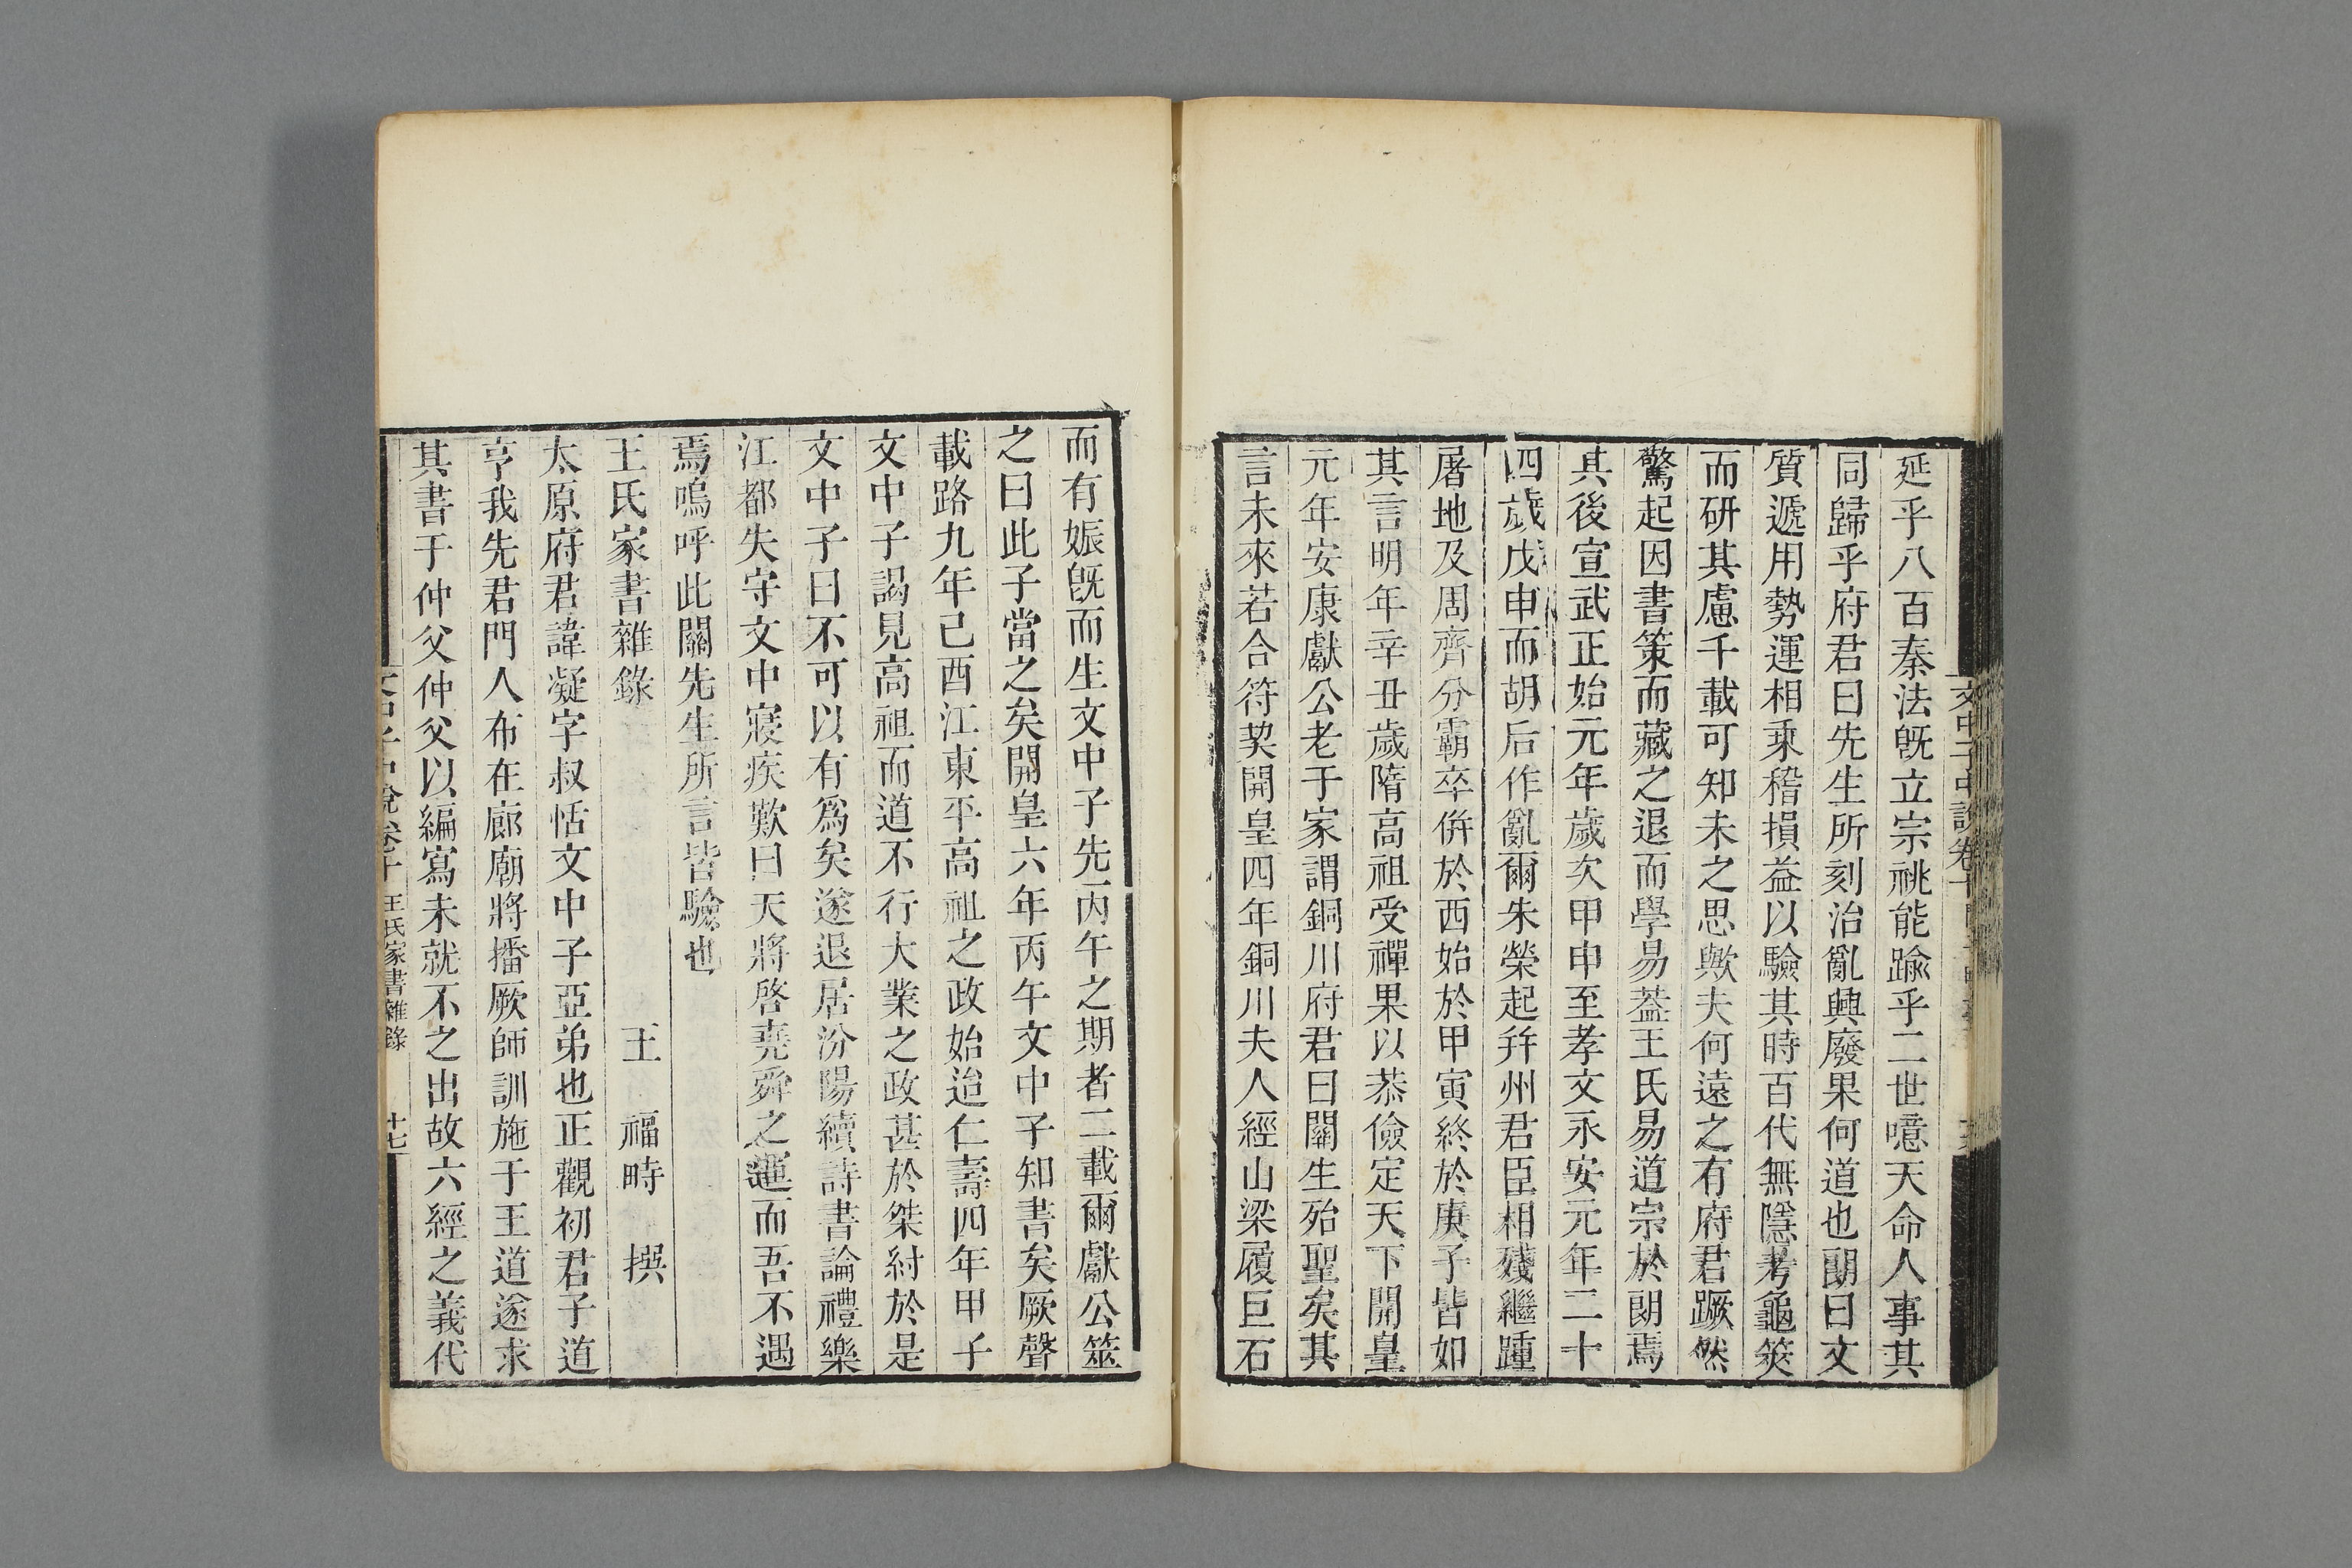 延乎八百秦法旣立宗祧能踰乎二世噫天命人事其
同歸乎府君曰先生所刻治亂興廢果何道也朗曰文
質遞用勢運相乗稽損益以驗其時百代無隱考龜筴
而研其慮千載可知未之思歟夫何遠之有府君蹶然
驚起因書策而藏之退而學易葢王氏易道宗於朗焉
其後宣武正始元年歲次甲申至孝文永安元年二十
四歲戊申而胡后作亂爾朱榮起幷州君臣相殘繼踵
屠地及周齊分霸卒併於西始於甲寅終於庚子皆如
其言明年辛丑歲隋高祖受禪果以恭儉定天下開皇
元年安康獻公老于家謂銅川府君曰關生殆聖矣其
言未來若合符契開皇四年銅川夫人經山梁履巨石
而有娠旣而生文中子先丙午之期者二載爾獻公筮
之曰此子當之矣開皇六年丙午文中子知書矣厥聲
載路九年己酉江東平高祖之政始迨仁壽四年甲子
文中子謁見高祖而道不行大業之政甚於桀紂於是
文中子曰不可以有爲矣遂退居汾陽續詩書論禮樂
江都失守文中寢疾歎曰天將啓堯舜之運而吾不遇
焉嗚呼此關先生所言皆驗也
王氏家書雜錄
王福畤撰
太原府君諱凝字叔恬文中子亞弟也正觀初君子道
亨我先君門人布在廊廟將播厥師訓施于王道遂求
其書于仲父仲父以編寫未就不之出故六經之義代
文中子中說卷十 王氏家書雜錄 十七